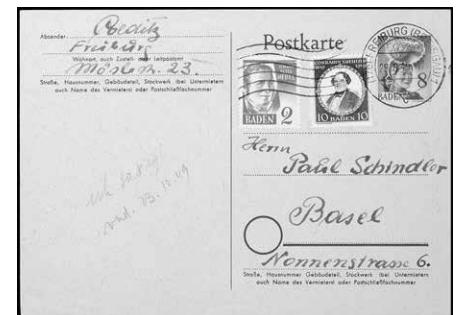 Absender:
Freiburg
Wohnort, auch Zustell- oder Leitpostamt
Möslestr. 23.
Straße, Hausnummer, Gebäudeteil, Stockwerk
auch Name des Vermieters oder Postschließfachnummer
Postkarte
BADEN 2
10 BADEN 10
BADEN 8
Herrn
Paul Schindler
Basel
Nonnenstrasse 6.
Straße, Hausnummer Gebäudeteil, Stockwerk (bei Untermietern
auch Name des Vermieters oder Postschließfachnummer)